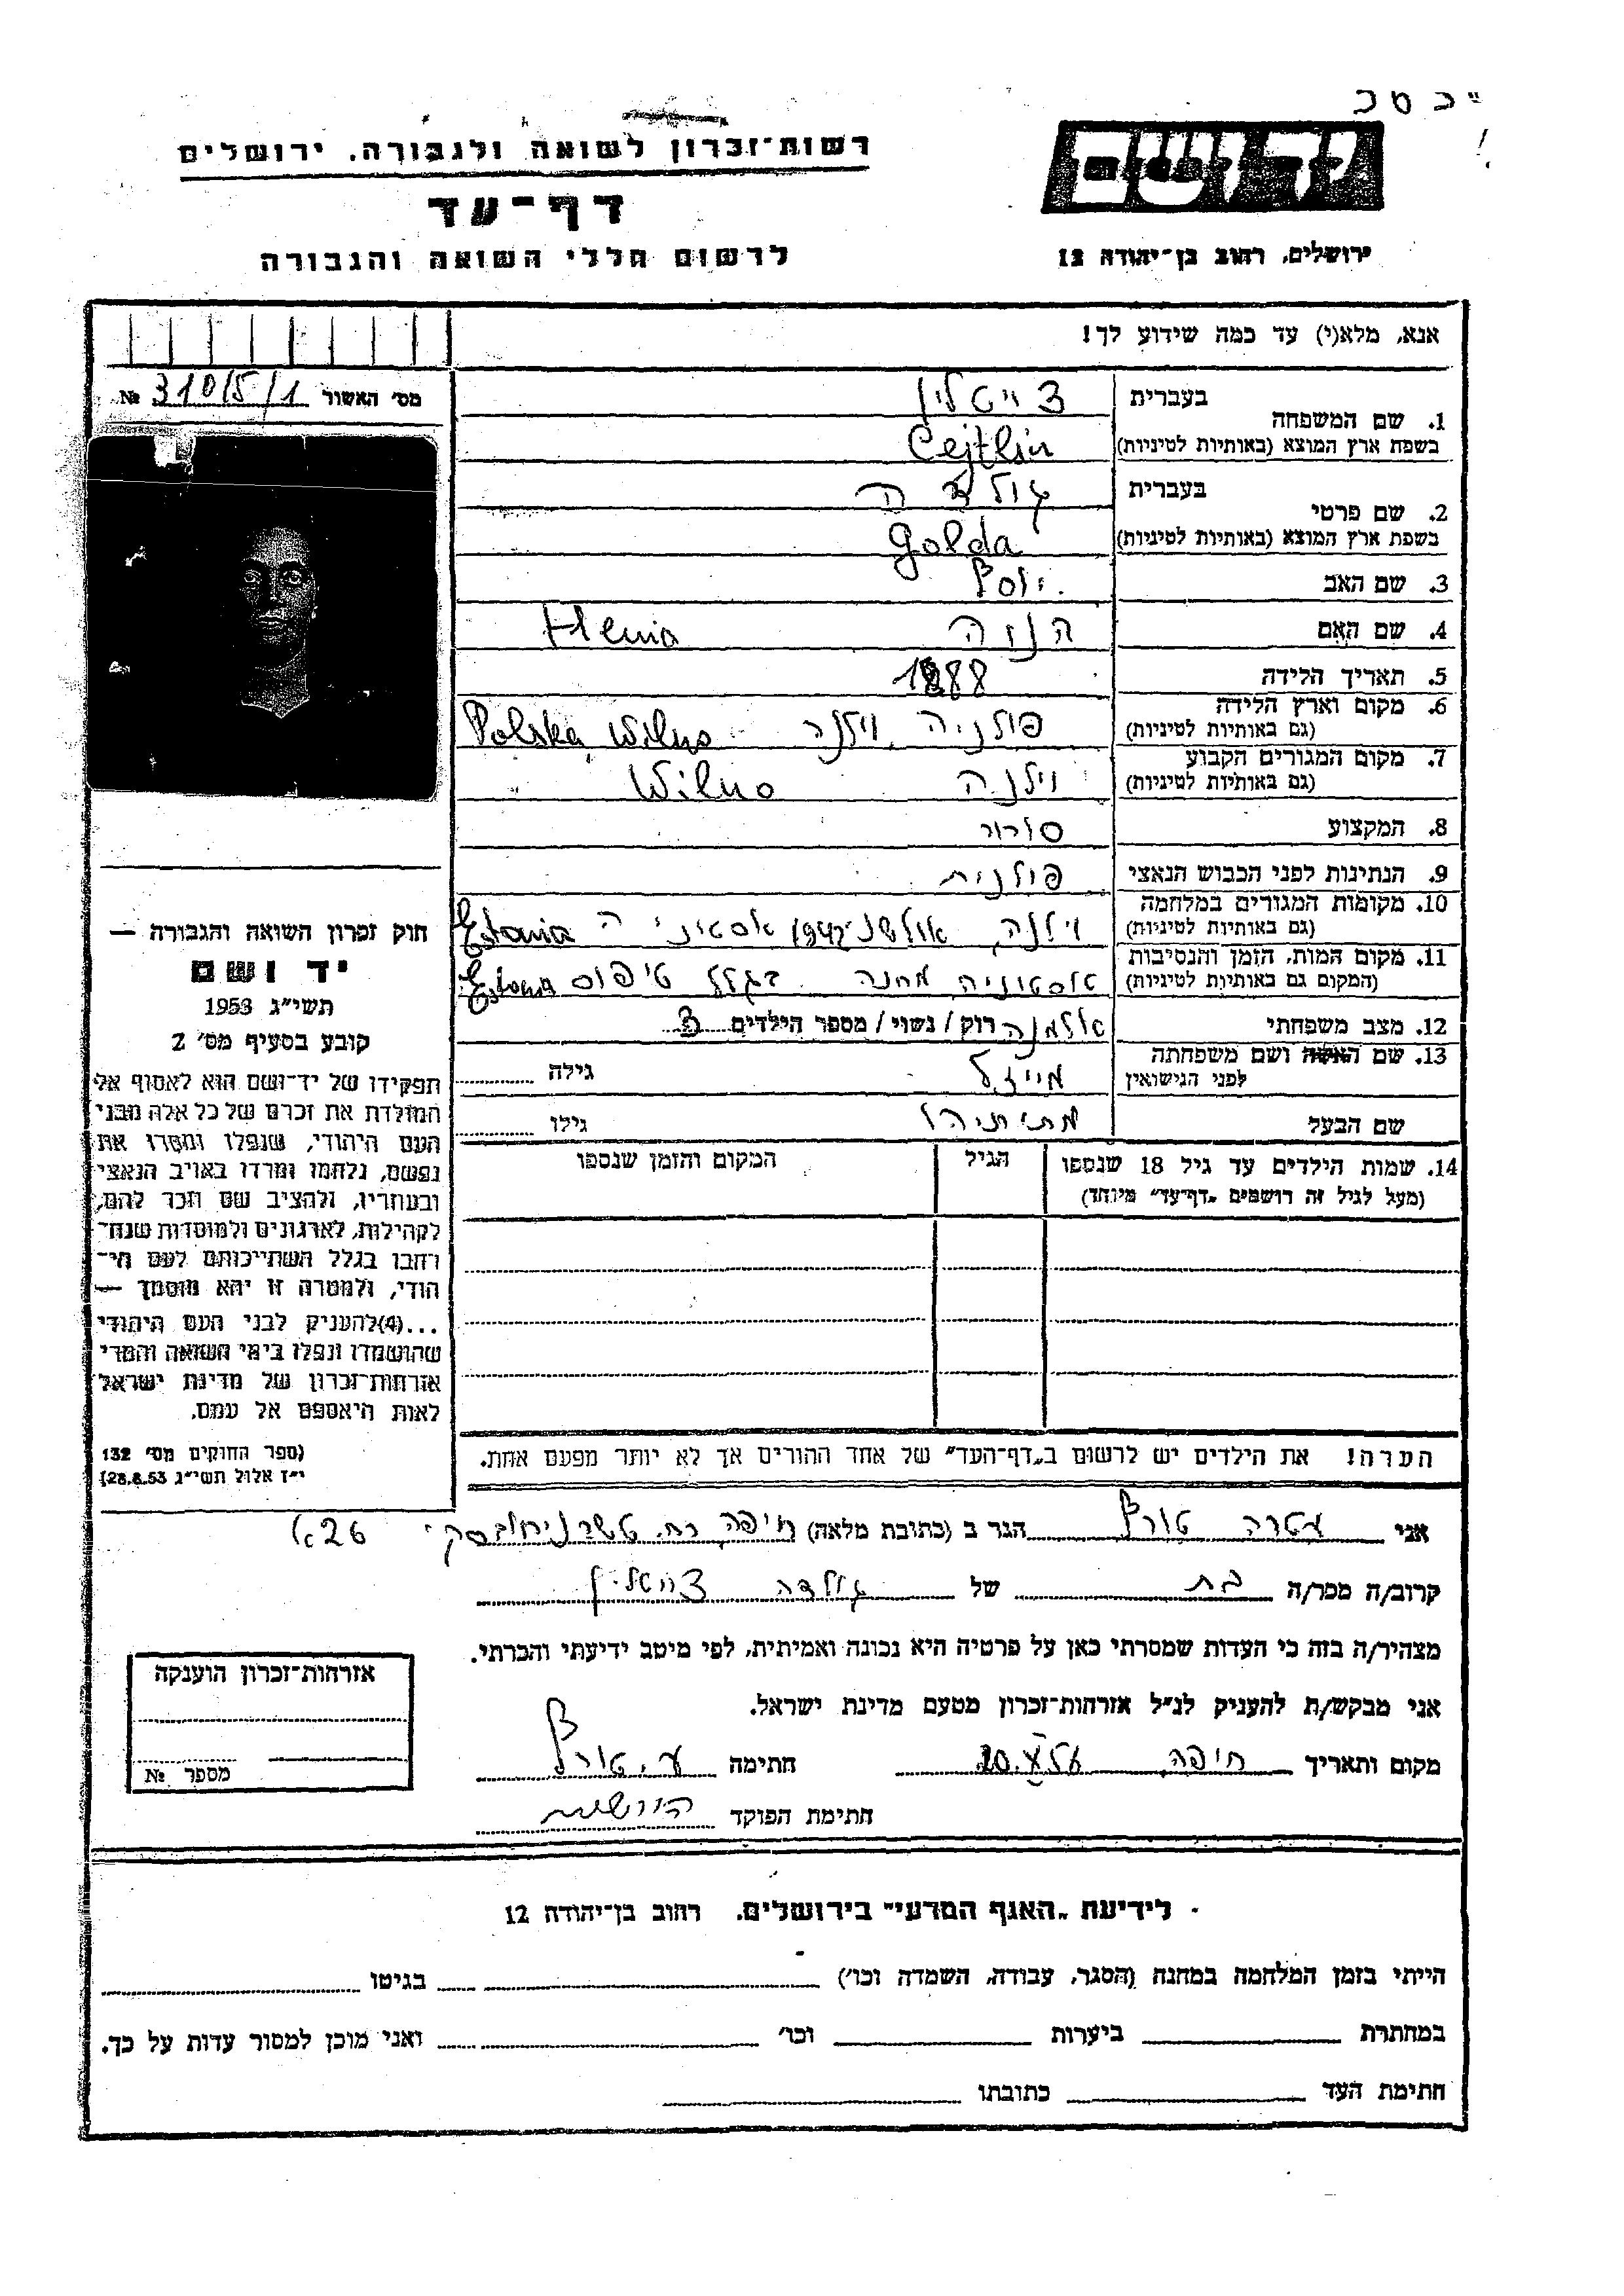 רשות־זכרון לשואה ולגבורה, ירושלים
דף־עד
לרשום חללי השואה והגבורה
יד ושם
ירושלים, רחוב בן־יהודה 12
אנא, מלא(י) עד כמה שידוע לך!
מס' האשור 310/5/1 №
1. שם המשפחה
בעברית צייטלין
בשפת ארץ המוצא (באותיות לטיניות) Cejtlin
2. שם פרטי
בעברית גולדה
בשפת ארץ המוצא (באותיות לטיניות) Golda
3. שם האב יוסף
4. שם האם הניה Henia
5. תאריך הלידה 1888
6. מקום וארץ הלידה פולניה, וילנה Polska, Wilno
(גם באותיות לטיניות)
7. מקום המגורים הקבוע וילנה Wilno
(גם באותיות לטיניות)
8. המקצוע סוחר
9. הנתינות לפני הכבוש הנאצי פולנית
10. מקומות המגורים במלחמה וילנה, Estonia
(גם באותיות לטיניות)
11. מקום המות, הזמן והנסיבות אסטוניה מחנה בגלל טיפוס Estonia
(המקום גם באותיות לטיניות)
12. מצב משפחתי אלמנה רוק / נשוי / מספר הילדים 3
13. שם האשה ושם משפחתה מייזל גילה
לפני הנישואין
שם הבעל מתיתיהו גילו
14. שמות הילדים עד גיל 18 שנספו הגיל המקום והזמן שנספו
(מעל לגיל זה רושמים „דף־עד" מיוחד)
הערה! את הילדים יש לרשום ב„דף־העד" של אחד ההורים אך לא יותר מפעם אחת.
חוק זכרון השואה והגבורה —
יד ושם
תשי"ג 1953
קובע בסעיף מס' 2
תפקידו של יד־ושם הוא לאסוף אל
המולדת את זכרם של כל אלה מבני
העם היהודי, שנפלו ומסרו את
נפשם, נלחמו ומרדו באויב הנאצי
ובעוזריו, ולהציב שם וזכר להם,
לקהילות, לארגונים ולמוסדות שנח־
רחבו בגלל השתייכותם לעם הי־
הודי, ולמטרה זו יהא מוסמך —
...(4)להעניק לבני העם היהודי
שהושמדו ונפלו בימי השואה והמרי
אזרחות־זכרון של מדינת ישראל
לאות היאספם אל עמם.
(ספר החוקים מס' 132
י"ז אלול תשי"ג 28.8.53)
אני עטרה טורץ הגר ב (כתובת מלאה) חיפה רח. טשרניחובסקי 26א
קרוב/ה מכר/ה בת של גולדה צייטלין
מצהיר/ה בזה כי העדות שמסרתי כאן על פרטיה היא נכונה ואמיתית, לפי מיטב ידיעתי והכרתי.
אני מבקש/ת להעניק לנ"ל אזרחות־זכרון מטעם מדינת ישראל.
מקום ותאריך חיפה, חתימה ע. טורץ
חתימת הפוקד
אזרחות־זכרון הוענקה
מספר №
לידיעת „האגף המדעי" בירושלים, רחוב בן־יהודה 12
הייתי בזמן המלחמה במחנה (הסגר, עבודה, השמדה וכו') בגיטו
במחתרת ביערות וכו' ואני מוכן למסור עדות על כך.
חתימת העד כתובתו